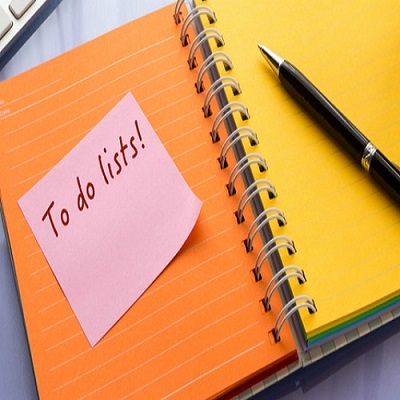 To do lists!